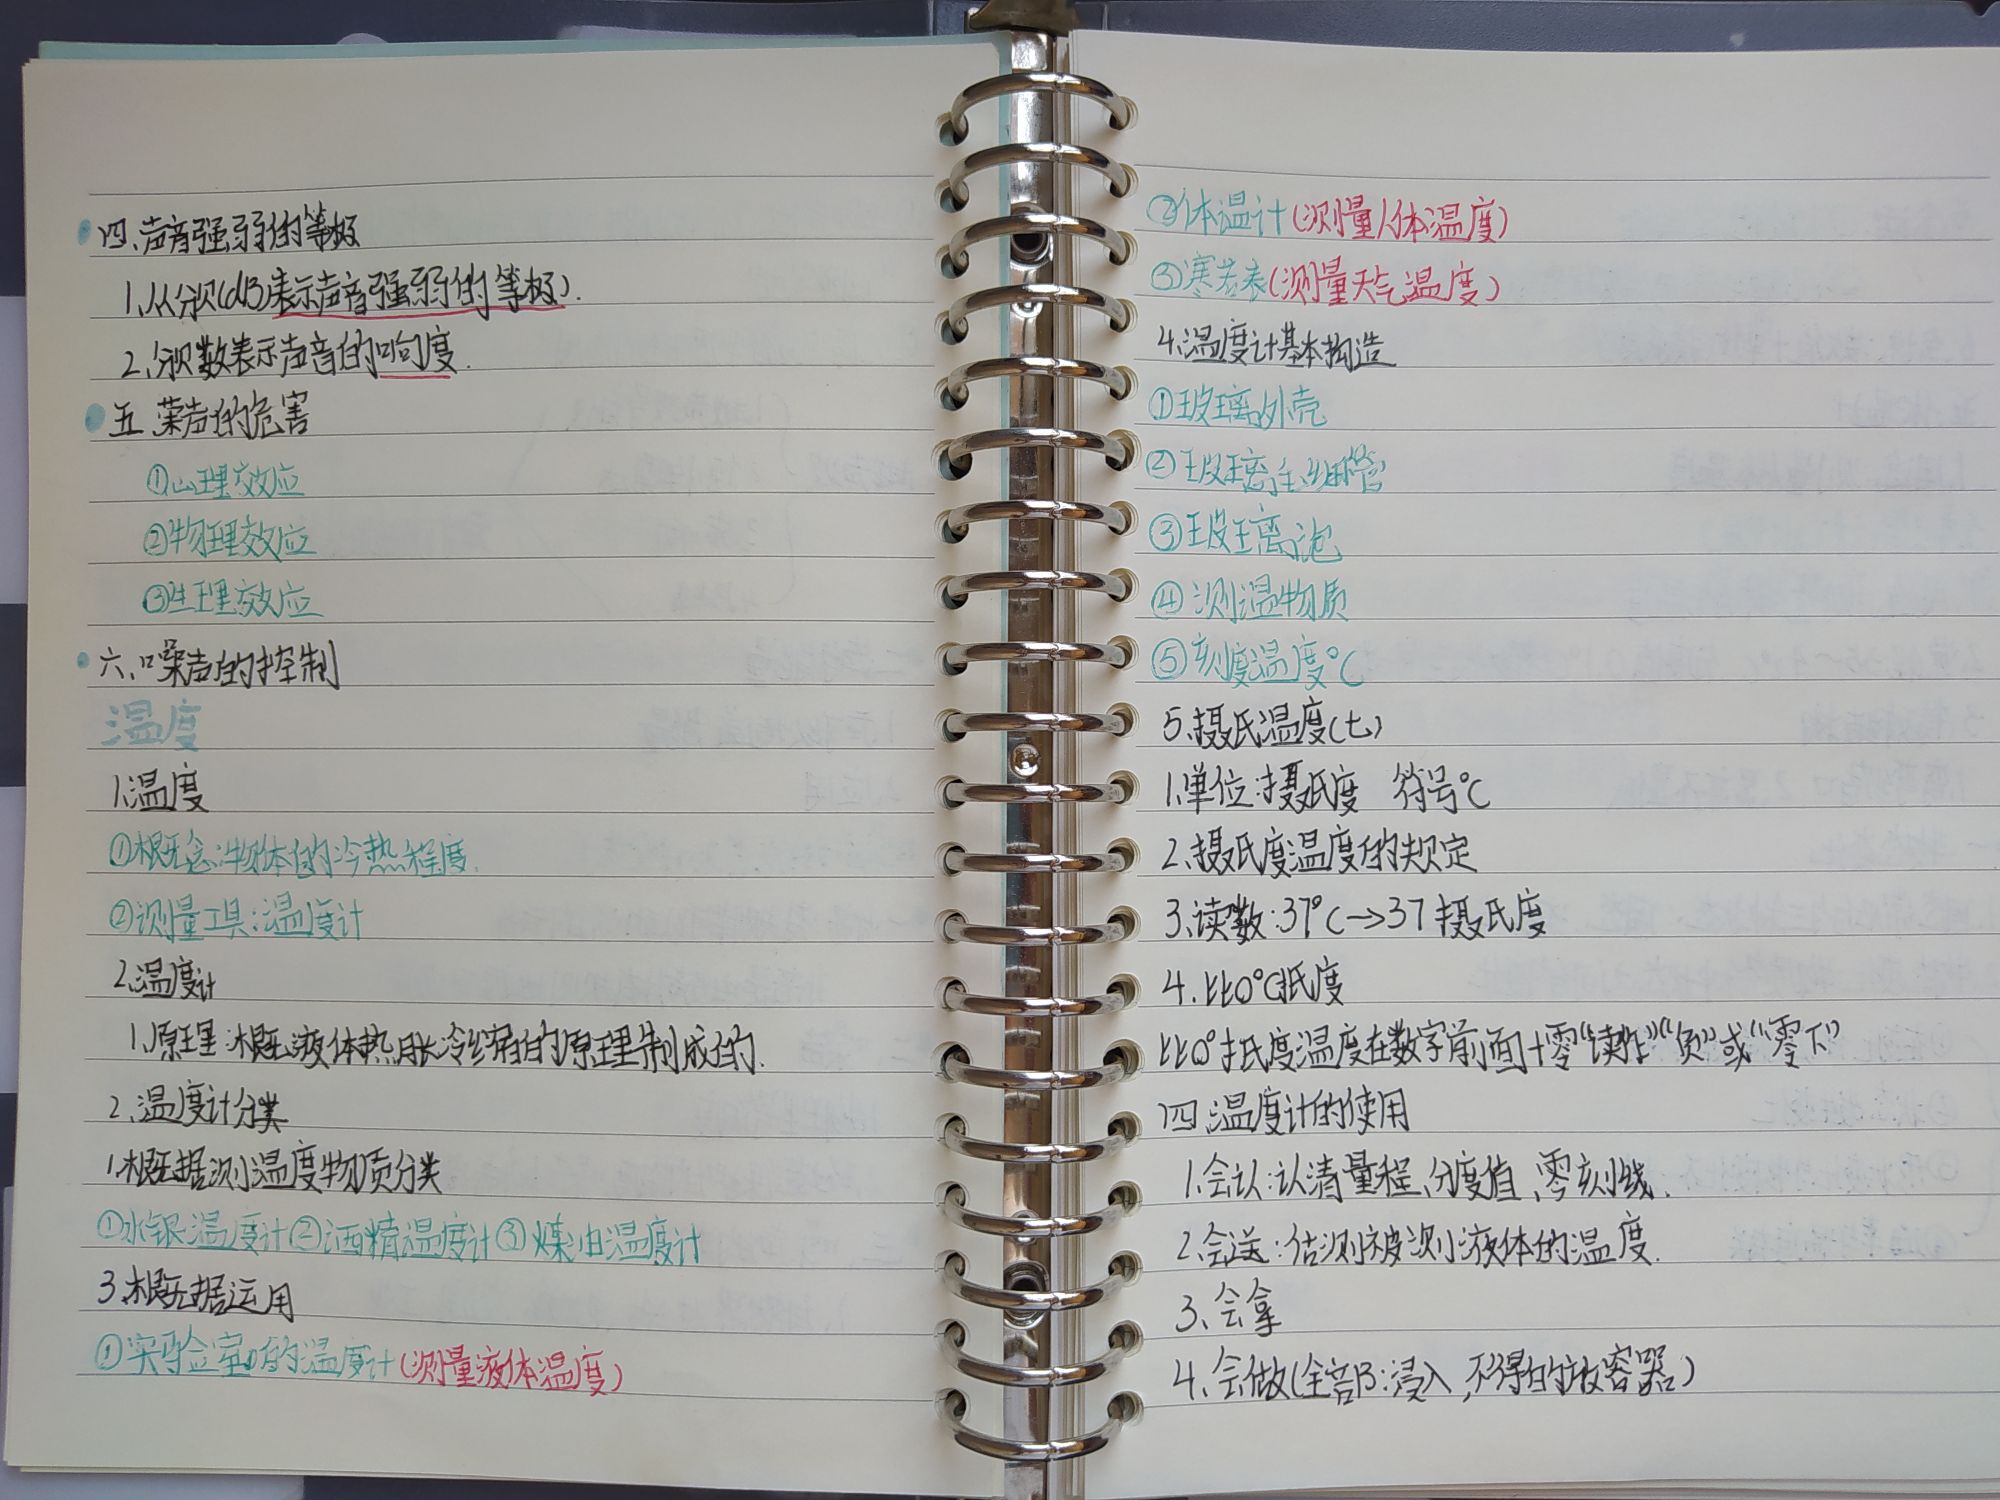 四、声音强弱的等极
1.从分贝(dB)表示声音强弱的等极).
2.分贝数表示声音的响度.
五、荣声的危害
①心理效应
②物理效应
③生理效应
六、噪声的控制
温度
1.温度
①概念:物体的冷热程度.
②测量工具:温度计
2.温度计
1.原理:根据液体热胀冷缩的的原理制成的.
2.温度计分类
1.根据测温度物质分类
①水银温度计②酒精温度计③煤油温度计
3.根据运用
①实验室的温度计(测量液体温度)
②体温计(测量人体温度)
③寒若表(测量天气温度)
4.温度计基本构造
①玻璃外壳
②玻璃毛细管
③玻璃泡
④测温物质
⑤刻度温度℃
5.摄氏温度(七)
1.单位:摄氏度 符号℃
2.摄氏度温度的规定
3.读数:37℃→37摄氏度
4.比0℃抵度
比0°抵度温度在数字前面+零“读作”“负”或“零下”
四、温度计的使用
1.会认:认清量程、分度值、零刻线.
2.会送:估测被测液体的温度.
3.会拿
4.会做(全部浸入,不得的放容器)